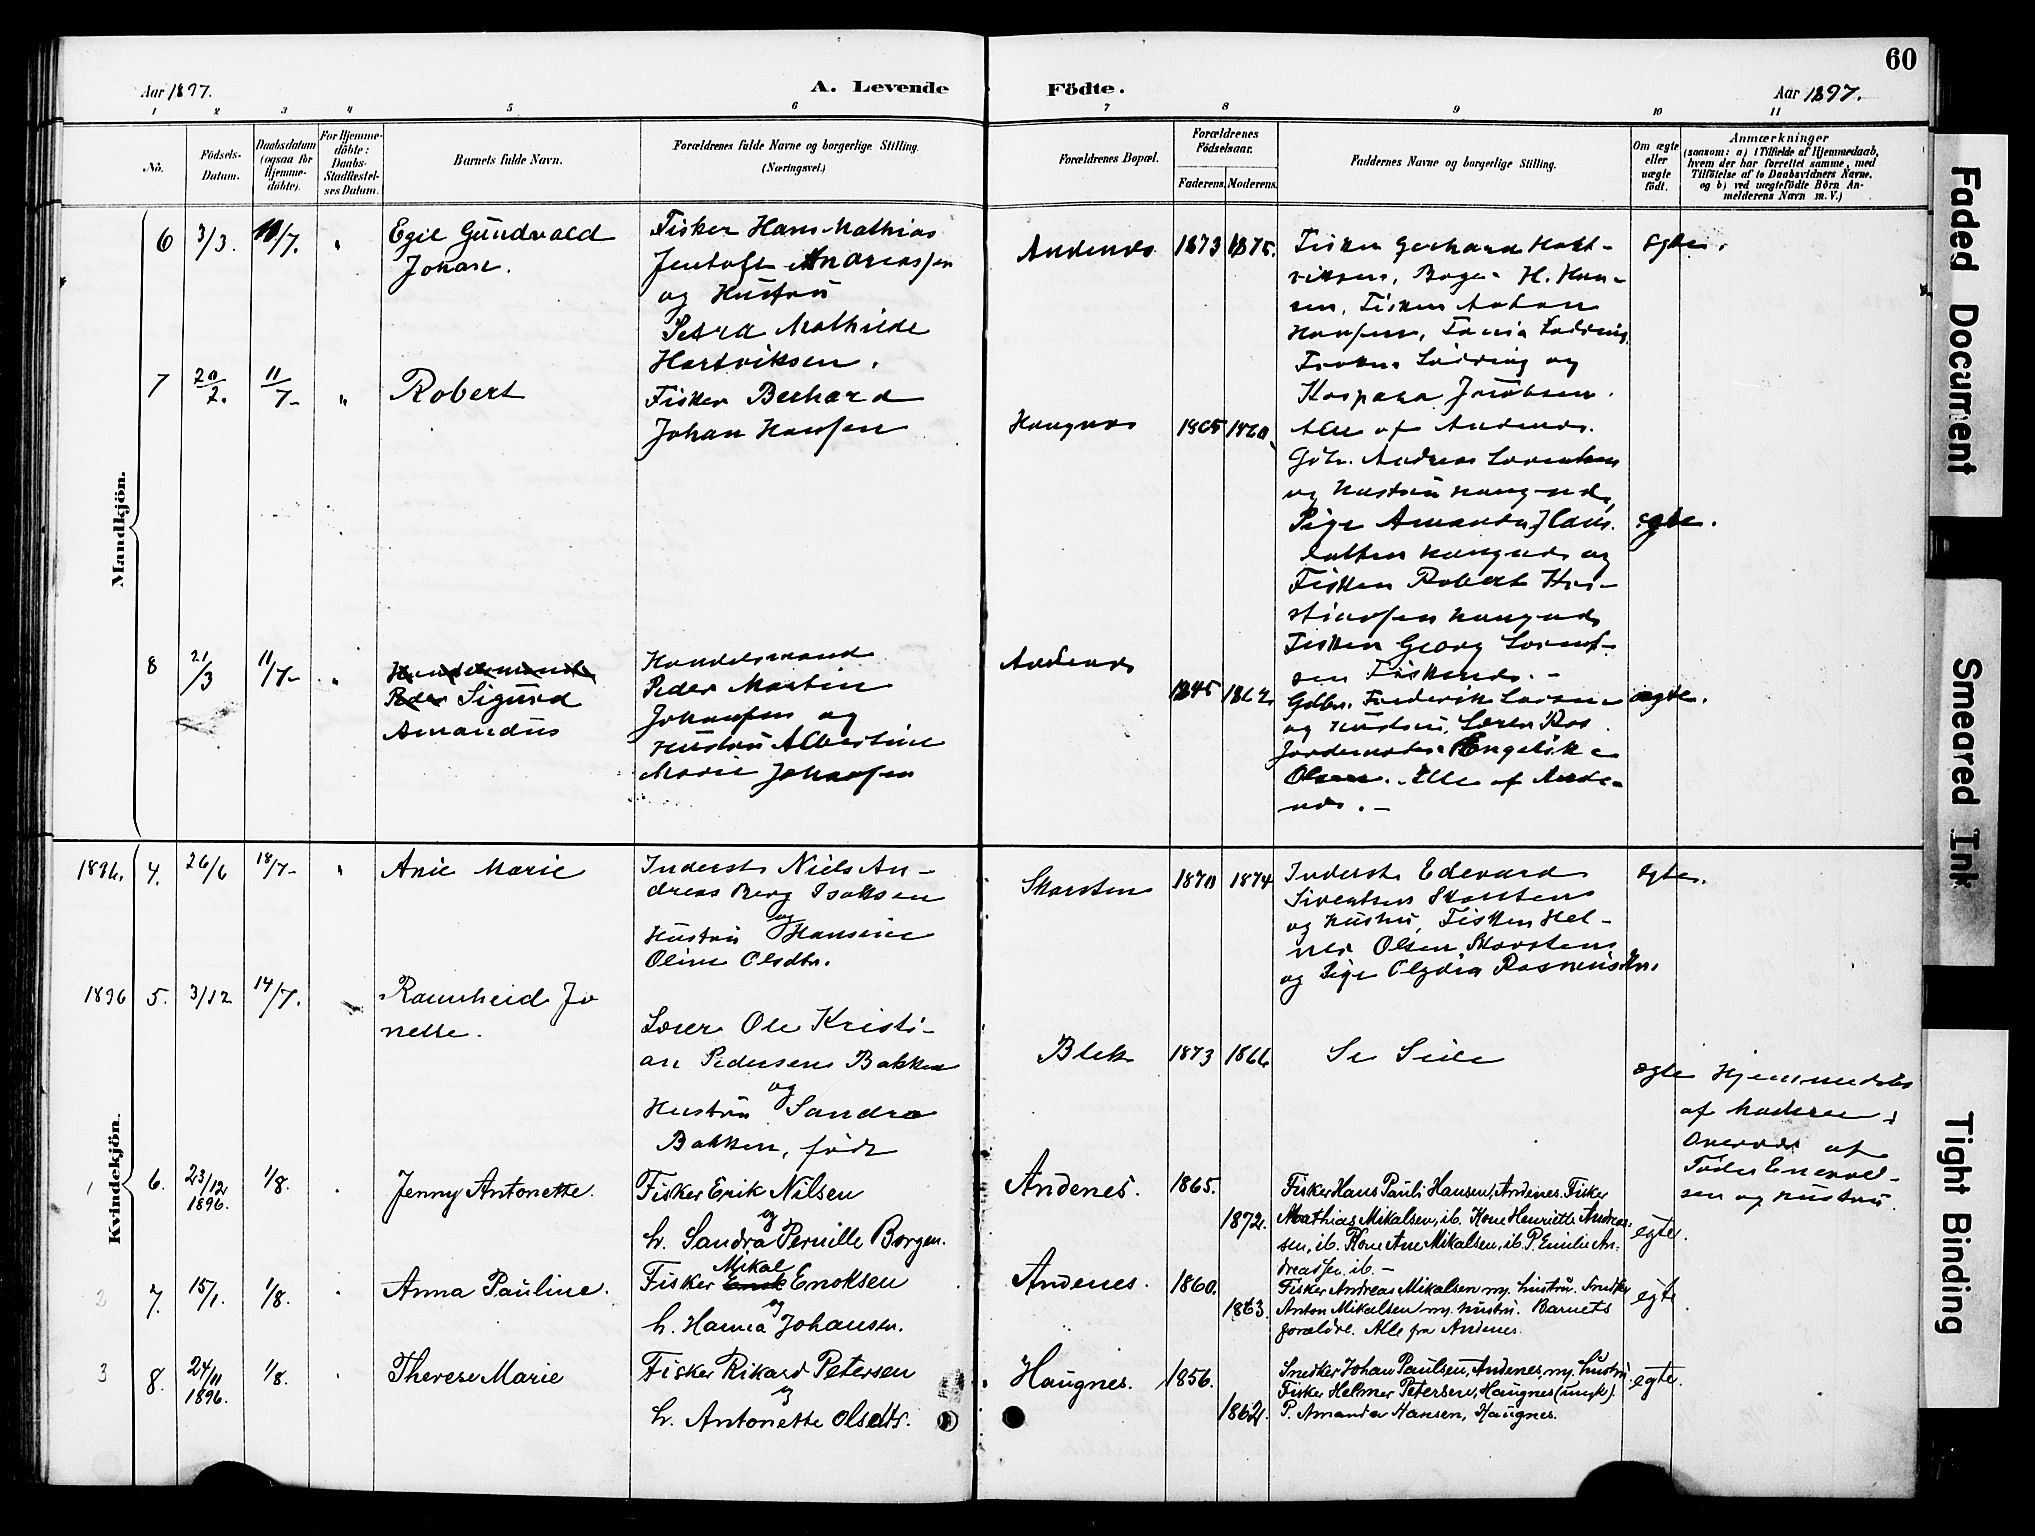 60
Aar 1897.
A. Levende
Födte.
Aar 1897.
1 2 3 4 5 6 7 8 9 10 11
No.
Födsels-
Datum.
Daabsdatum
(ogsaa for
Hjemme-
döbte).
For Hjemme-
döbte:
Daabs-
Stadfæstel-
ses Datum.
Barnets fulde Navn.
Forældrenes fulde Navne og borgerlige Stilling.
(Næringsvei.)
Forældrenes Bopæl.
Forældrenes
Födselsaar.
Faderens. Moderens.
Faddernes Navne og borgerlige Stilling.
Om ægte
eller
uægte
födt.
Anmærkninger
(saasom: a) i Tilfælde af Hjemmedaab,
hvem der har forrettet samme, med
Tilföielse af to Daabsvidners Navne,
og b) ved uægtefödte Börn An-
melderens Navn m. V.)
Mandkjön.
6 3/3. 11/7. "
Egil Gundvald
Johan.
Fisker Hans Mathias
Jentoft Andreassen
og Hustru
Petra Mathilde
Hartviksen.
Andenes 1873 1875.
Fisker Gerhard Hart-
viksen, H. Han-
sen, Fisker
Hansen,
og
Kaspara Jacobsen.
Alle af Andenes.
egte.
7 20/2. 11/7- "
Robert
Fisker Berhard
Johan Hansen
Haugnes 1865 1860
Gbr. Andreas Lorentsen
og Hustru Haugnes,
Pige Amanda Hans-
datter Haugnes og
Fisker Robert Kri-
stiansen Haugnes
Fisker Georg Lorent-
sen
egte.
8 21/3 11/7- "
Handelsmand
Peder Sigurd
Amandus
Handelsmand
Peder Martin
Johansen og
Hustru Albertine
Marie Johansen
Andenes
1845 1862
Gdbr. Frederik Larsen
og Hustru, Lærer
Jordemoder Engelike
Olsen. Alle af Ande-
nes. -
ægte.
Kvindekjön.
1896. 4. 26/6 18/7- "
Anie Marie
Inderst Niels An-
dreas Berg Isaksen
og
Hustru Hansine
Oline Olsdtr.
Skarsten 1870 1874
Inderst Edevard
Sivertsen Skarsten
og Hustru, Fisker Hel-
mer Olsen Skarsten
og Pige Olydia Rasmussen.
egte.
1896 5. 3/12 14/7.
Raunheid Jo
nette.
Lærer Ole Kristi-
an Pedersen Bakken
og
Hustru Sandra
Bakken, født
Bleik 1873 1866
Se Side
ægte
Hjemmedøbt
af Moderen i
Overvær af
Peder Enevold-
sen og Hustru.
6. 23/12 1896. 1/8.
Jenny Antonette.
Fisker Erik Nilsen
og
h. Sandra Pernille Borgen.
Andenes. 1865.
1872.
Fisker Hans Pauli Hansen, Andenes. Fisker
Mathias Mikalsen, ib. Kone Henriette Andreas-
sen, ib. Kone Ane Mikalsen, ib. P. Emilie An-
dreassen ib. -
egte.
2 7. 15/1. 1/8.
Anna Pauline.
Mikal
Fisker Erik Enoksen
og
h. Hanna Johansen.
Andenes. 1860.
1863.
Fisker Andreas Mikalsen m. hustru. Snedker
Anton Mikalsen m. hustru. Barnets
forældre. Alle fra Andenes.
egte.
3 8. 24/11 1896. 1/8.
Therese Marie
Fisker Rikard Petersen
og
h. Antonette Olsdtr.
Haugnes. 1856.
1862.
Snedker Johan Paulsen, Andenes, m. hustru
Fisker Helmer Petersen, Haugnes (ungk).
P. Amanda Hansen, Haugnes.
egte.
Faded Document
Smeared Ink
Tight Binding